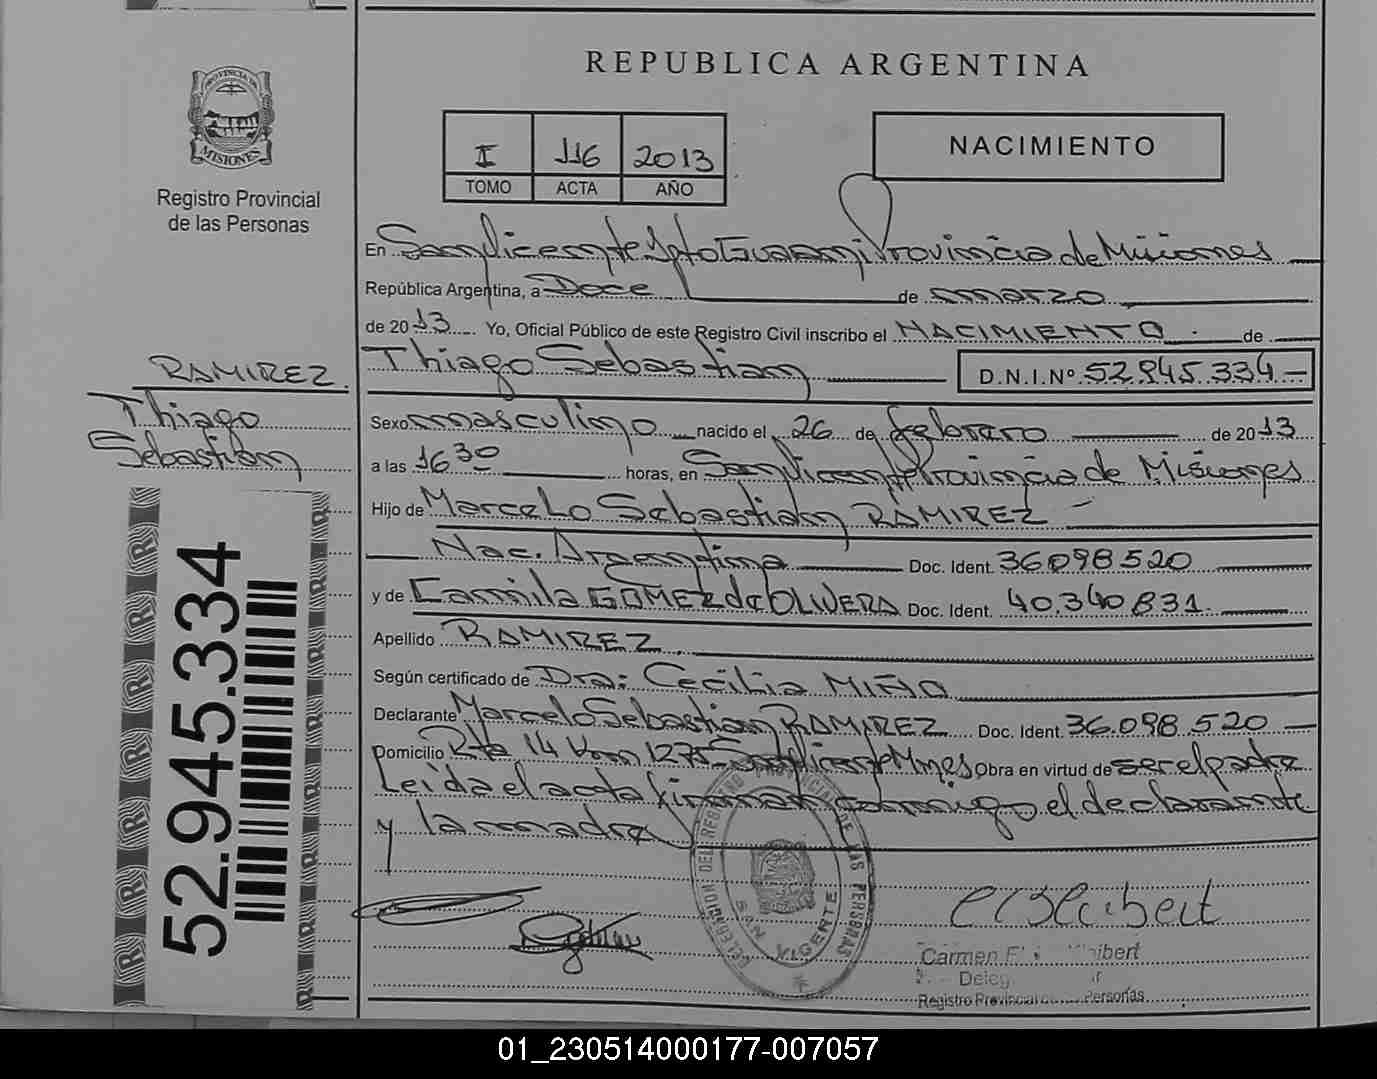 REPUBLICA ARGENTINA
PROVINCIA DE
MISIONES
Registro Provincial
de las Personas
I 116 2013
TOMO ACTA AÑO
NACIMIENTO
En San Vicente Dpto Guaraní Provincia de Misiones
República Argentina, a Doce de marzo
de 2013 Yo, Oficial Público de este Registro Civil inscribo el NACIMIENTO de
Thiago Sebastian D.N.I.Nº 52.945.334
RAMIREZ
Thiago
Sebastián
Sexo masculino nacido el 26 de febrero de 2013
a las 16 30 horas, en San Vicente Provincia de Misiones
Hijo de Marcelo Sebastian RAMIREZ
Nac. Argentina Doc. Ident. 36.098.520
y de Camila GOMEZ de OLIVERA Doc. Ident. 40.340.831
Apellido RAMIREZ
Según certificado de Dra: Cecilia MIÑO
Declarante Marcelo Sebastian RAMIREZ Doc. Ident. 36.098.520
Domicilio Rta 14 Km 1275 San Vicente Mnes Obra en virtud de ser el padre
Leida el acta firman conmigo el declarante
y la madre
52.945.334
DELEGACION DEL REGISTRO PROVINCIAL DE LAS PERSONAS
SAN VICENTE
Carmen
Deleg
Registro Provincial de las Personas
01_230514000177-007057